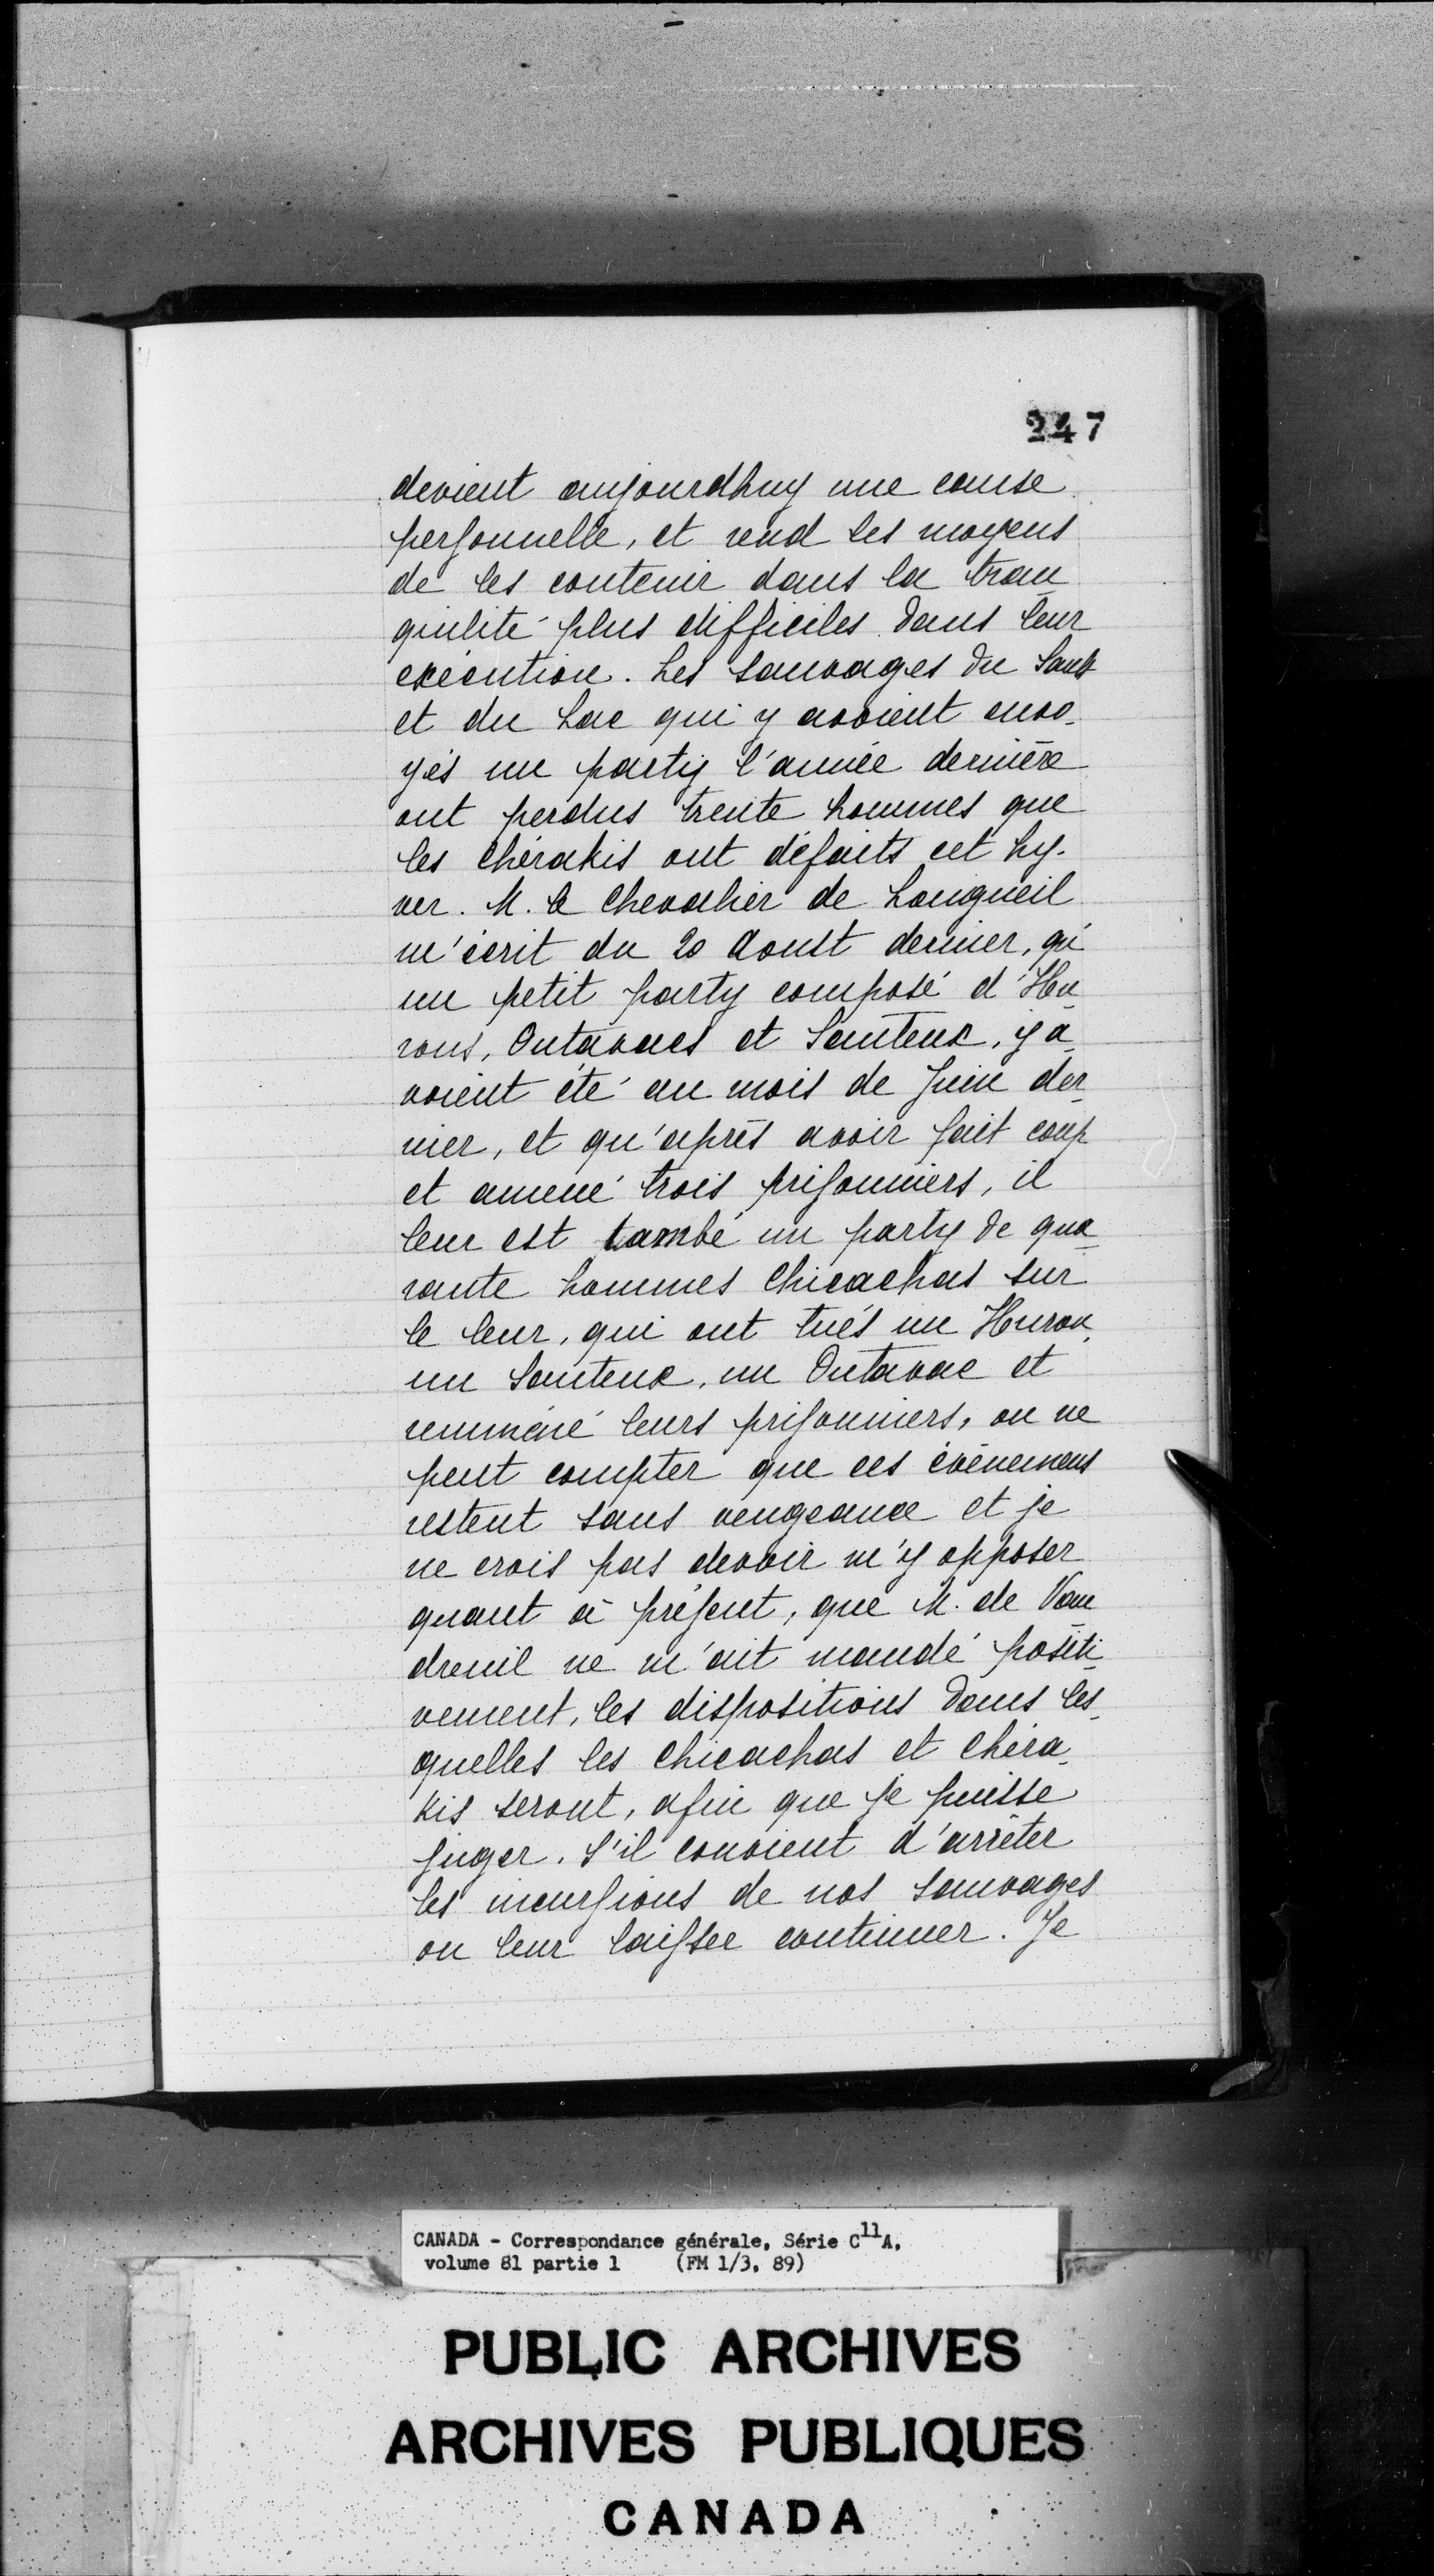 247
devient aujourdhuy une cause
personnelle, et rend les moyens
de les contenir dans la tran_
quilité plus difficiles dans leur
exécution. Les sauvages du Sault
et du Lac qui y avoient envo_
yés un party l'année dernière
ont perdus trente hommes que
les Chérakis ont défaits cet hy-
ver. M. le Chevalier de Longueil
m'écrit du 20 Aoust dernier, qu'
un petit party composé d'Hu_
rons, Outavacs et Sauteux, y a_
voient été au mois de Juin der_
nier, et qu'après avoir fait coup
et amené trois prisonniers, il
leur est tombé un party de qua_
rante hommes Chicachas sur
le leur, qui ont tués un Huron,
un Sauteux, un Outavac et
remméné leurs prisonniers, on ne
peut compter que ces évènemens
restent sans vengeance et je
ne crois pas devoir m'y opposer
quant à présent, que M. de Vau_
dreuil ne m'ait mandé positi_
vement, les dispositions dans les_
quelles les Chicachas et Chéra_
kis seront, afin que je puisse
juger, s'il convient d'arrêter
les incursions de nos sauvages
ou leur laisser continuer. Je
CANADA - Correspondance générale, Série C11A,
volume 81 partie 1 (FM 1/3, 89)
PUBLIC ARCHIVES
ARCHIVES PUBLIQUES
CANADA